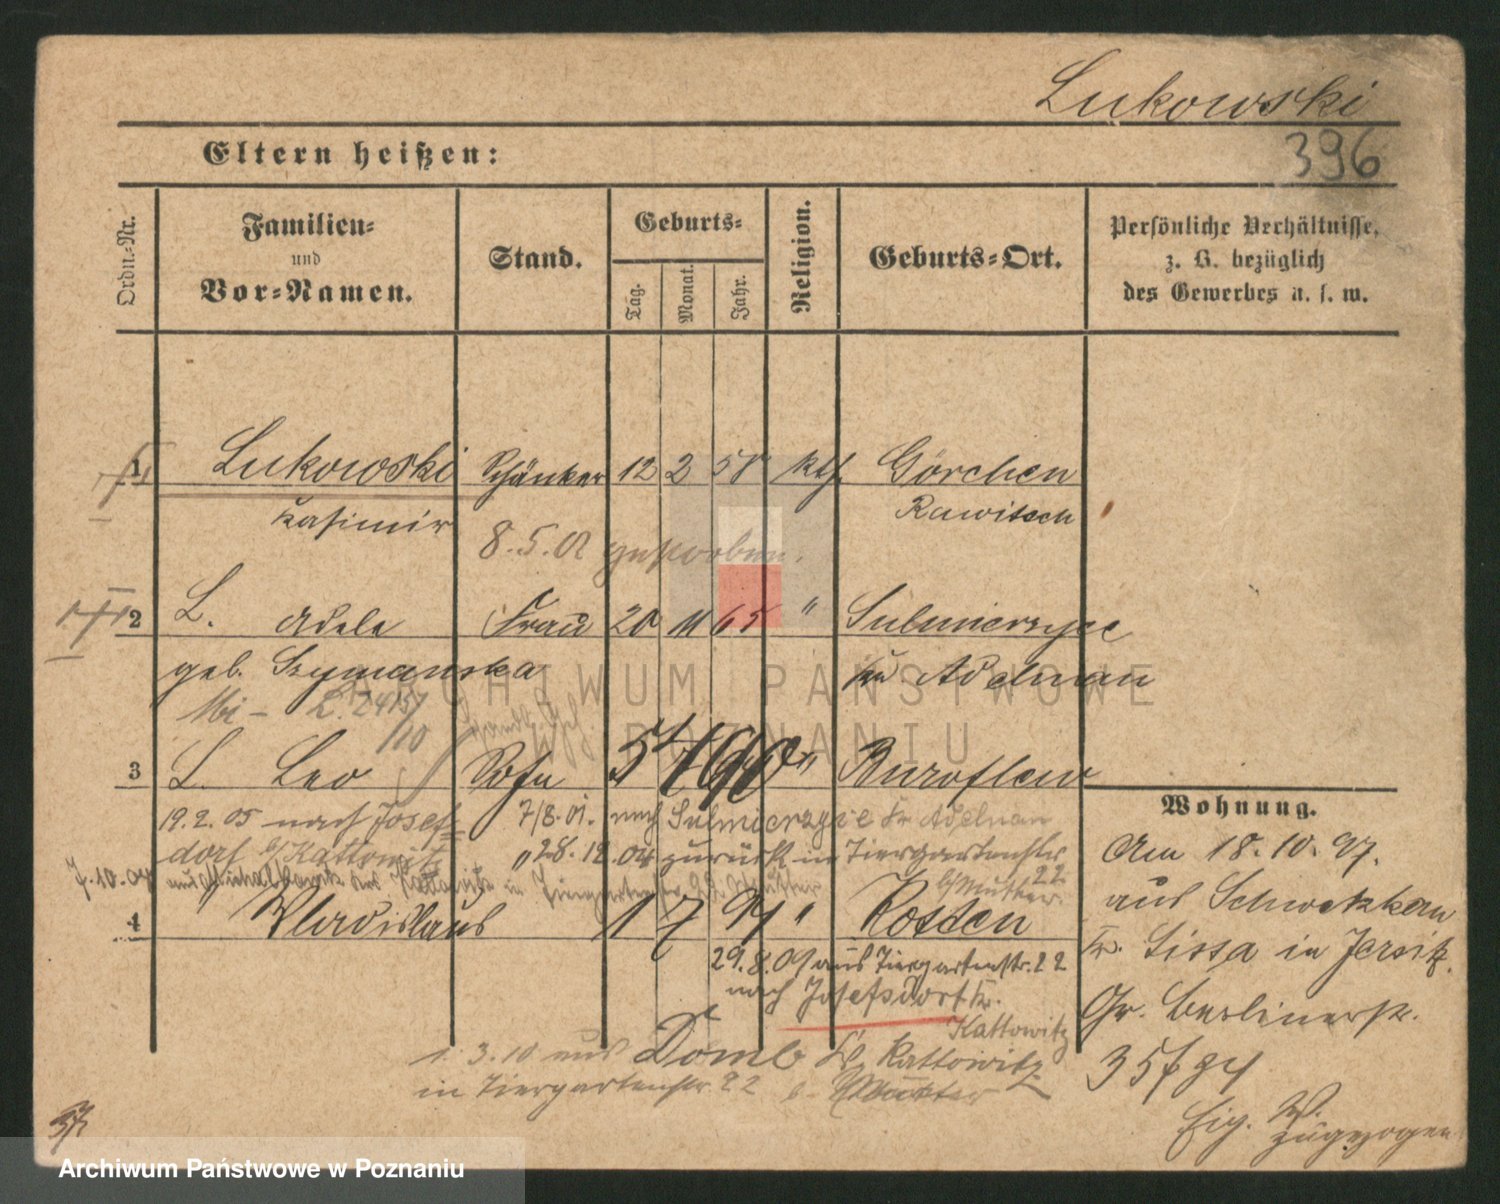 Lukowski
396
Eltern heißen:
Ordn.-Nr.
Familien-
und
Vor-Namen.
Stand.
Geburts-
Tag.
Monat.
Jahr.
Religion.
Geburts-Ort.
Persönliche Verhältnisse,
z. B. bezüglich
des Gewerbes u. s. w.
1 Lukowski Schänker 12 2 58 kth. Görchen
Kasimir Rawitsch
8.5.01 gestorben.
2 L. Adele Frau 20 11 65 " Sulmierzyce
geb. Szymanska Adelnau
L. 2415/
/10
3 L. Leo Sohn 5 90 "
19.2.05 nach Josef-
dorf b/Kattowitz
7/8.01. nach Sulmierzyce Kr. Adelnau
" 28.12.04 zurück in Tiergartenstr.
22
b/Mutter.
7.10.04
4 Wladislaus 1 7 94 " Kosten
29.8.09 aus Tiergartenstr. 22
nach Josefsdorf Kr.
Kattowitz
1.3.10 aus Domb Kr. Kattowitz
in Tiergartenstr. 22 b. Mutter
Wohnung.
Am 18.10.97.
aus Schwetzkau
Kr. Lissa in Jersitz.
Gr. Berlinerstr.
Eig. W.
zugezogen
ARCHIWUM PAŃSTWOWE
W POZNANIU
Archiwum Państwowe w Poznaniu